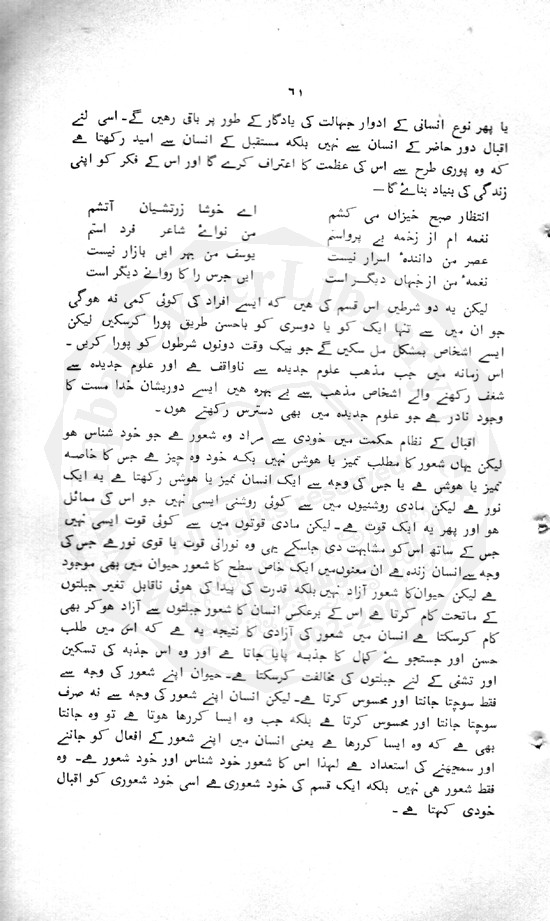 ٦١
یا پھر نوع انسانی کے ادوار جہالت کی یادگار کے طور پر باقی رھیں گے۔ اسی لئے
اقبال دور حاضر کے انسان سے نہیں بلکہ مستقبل کے انسان سے امید رکھتا ھے
کہ وہ پوری طرح سے اس کی عظمت کا اعتراف کرے گا اور اس کے فکر کو اپنی
زندگی کی بنیاد بنائے گا —
انتظار صبح خیزاں می کشم اے خوشا زرتشیان آتشم
نغمہ ام از زخمہ بے پرواستم من نوائے شاعر فرد استم
عصر من دانندۂ اسرار نیست یوسف من بہر ایں بازار نیست
نغمۂ من از جہاں دیگر است ایں جرس را کاروانے دیگر است
لیکن یہ دو شرطیں اس قسم کی ھیں کہ ایسے افراد کی کوئی کمی نہ ھوگی
جو ان میں سے تنہا ایک کو یا دوسری کو باحسن طریق پورا کرسکیں لیکن
ایسے اشخاص بمشکل مل سکیں گے جو بیک وقت دونوں شرطوں کو پورا کریں -
اس زمانہ میں جب مذھب علوم جدیدہ سے ناواقف ھے اور علوم جدیدہ سے
شغف رکھنے والے اشخاص مذھب سے بے بہرہ ھیں ایسے دوریشان خدا مست کا
وجود نادر ھے جو علوم جدیدہ میں بھی دسترس رکھتے ھوں -
اقبال کے نظام حکمت میں خودی سے مراد وہ شعور ھے جو خود شناس ھو
لیکن یہاں شعور کا مطلب تمیز یا ھوشی نہیں بکہ خود وہ چیز ھے جس کا خاصہ
تمیز یا ھوشی ھے یا جس کی وجہ سے ایک انسان تمیز یا ھوشی رکھتا ھے یہ ایک
نور ھے لیکن مادی روشنیوں میں سے کوئی روشنی ایسی نہیں جو اس کی مماثل
ھو اور پھر یہ ایک قوت ھے۔ لیکن مادی قوتوں میں سے کوئی قوت ایسی نہیں
جس کے ساتھ اس کو مشابہت دی جاسکے یہی وہ نورانی قوت یا قوی نور ھے جس کی
وجہ سے انسان زندہ ھے ان معنوں میں ایک خاص سطح کا شعور حیوان میں بھی موجود
ھے لیکن حیوان کا شعور آزاد نہیں بلکہ قدرت کی پیدا کی ھوئی ناقابل تغیر جبلتوں
کے ماتحت کام کرتا ھے اس کے برعکس انسان کا شعور جبلتوں سے آزاد ھو کر بھی
کام کرسکتا ھے انسان میں شعور کی آزادی کا نتیجہ یہ ھے کہ اس میں طلب
حسن اور جستجوئے کمال کا جذبہ پایا جاتا ھے اور وہ اس جذبہ کی تسکین
اور تشفی کے لئے جبلتوں کی مخالفت کرسکتا ھے۔ حیوان اپنے شعور کی وجہ سے
فقط سوچتا جانتا اور محسوس کرتا ھے۔ لیکن انسان اپنے شعور کی وجہ سے نہ صرف
سوچتا جانتا اور محسوس کرتا ھے بلکہ جب وہ ایسا کررھا ھوتا ھے تو وہ جانتا
بھی ھے کہ وہ ایسا کررھا ھے یعنی انسان میں اپنے شعور کے افعال کو جاننے
اور سمجھنے کی استعداد ھے لہذا اس کا شعور خود شناس اور خود شعور ھے۔ وہ
فقط شعور ھی نہیں بلکہ ایک قسم کی خود شعوری ھے اسی خود شعوری کو اقبال
خودی کہتا ھے -